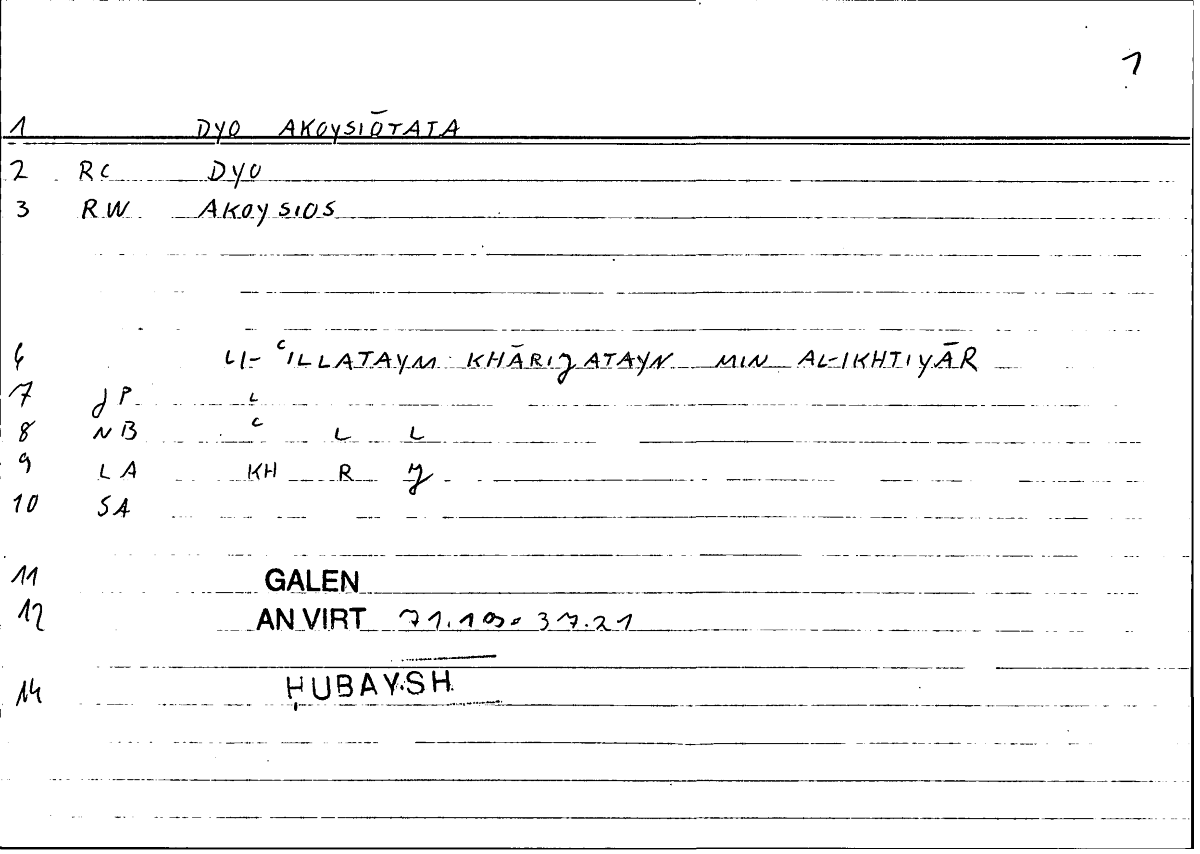 1
1 DYO AKOYSIŌTATA
2 RC DYO
3 RW AKOYSIOS
6 LI- ᶜILLATAYM KHĀRIJATAYN MIN AL-IKHTIYĀR
7 JP L
8 NB ᶜ L L
9 LA KH R J
10 SA
11 GALEN
12 AN VIRT 71.19. 37.21
14 ḤUBAYSH